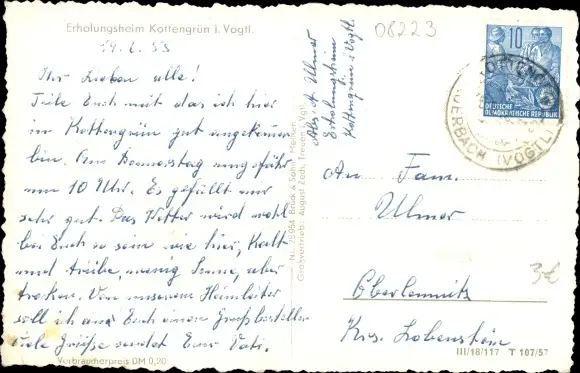 Erholungsheim Kottengrün i. Vogtl.
Ihr Lieben alle!
Teile Euch mit das ich hier
in Kottengrün gut angekommen
bin. Am Donnerstag ungefähr
um 10 Uhr. Es gefällt mir
sehr gut. Das Wetter wird wohl
bei Euch so sein wie hier, Kalt
und trübe, wenig Sonne, aber
troken. Von unserem Heimleiter
soll ich an Euch einen Gruß bestellen
Viele Grüße sendet Euer Vati.
Verbraucherpreis DM 0,20
Großvertrieb: August Zech, Treuen Vgtl.
Abs. Ulmer
Erholungsheim
Kottengrün i. Vogtl.
08223
10
DEUTSCHE
DEMOKRATISCHE REPUBLIK
AUERBACH (VOGTL)
An Fam.
Ulmer
Oberlemnitz
Krs. Lobenstein
3€
III/18/117 T 107/57